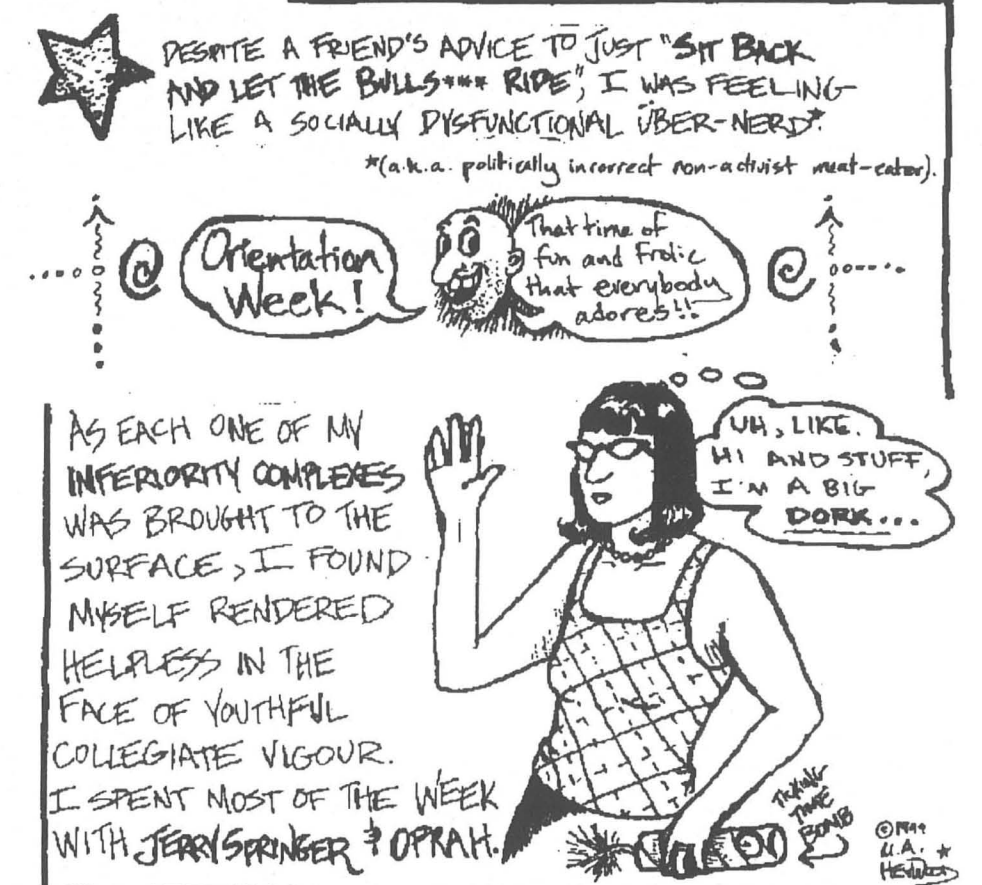 DESPITE A FRIEND'S ADVICE TO JUST "SIT BACK
AND LET THE BULLS*** RIDE", I WAS FEELING
LIKE A SOCIALLY DYSFUNCTIONAL ÜBER-NERD*.
*(a.k.a. politically incorrect non-activist meat-eater).
Orientation
Week!
That time of
fun and frolic
that everybody
adores!!
AS EACH ONE OF MY
INFERIORITY COMPLEXES
WAS BROUGHT TO THE
SURFACE, I FOUND
MYSELF RENDERED
HELPLESS IN THE
FACE OF YOUTHFUL
COLLEGIATE VIGOUR.
I SPENT MOST OF THE WEEK
WITH JERRY SPRINGER & OPRAH.
UH, LIKE.
HI AND STUFF,
I'M A BIG
DORK...
TICKING
TIME
BOMB
©1999